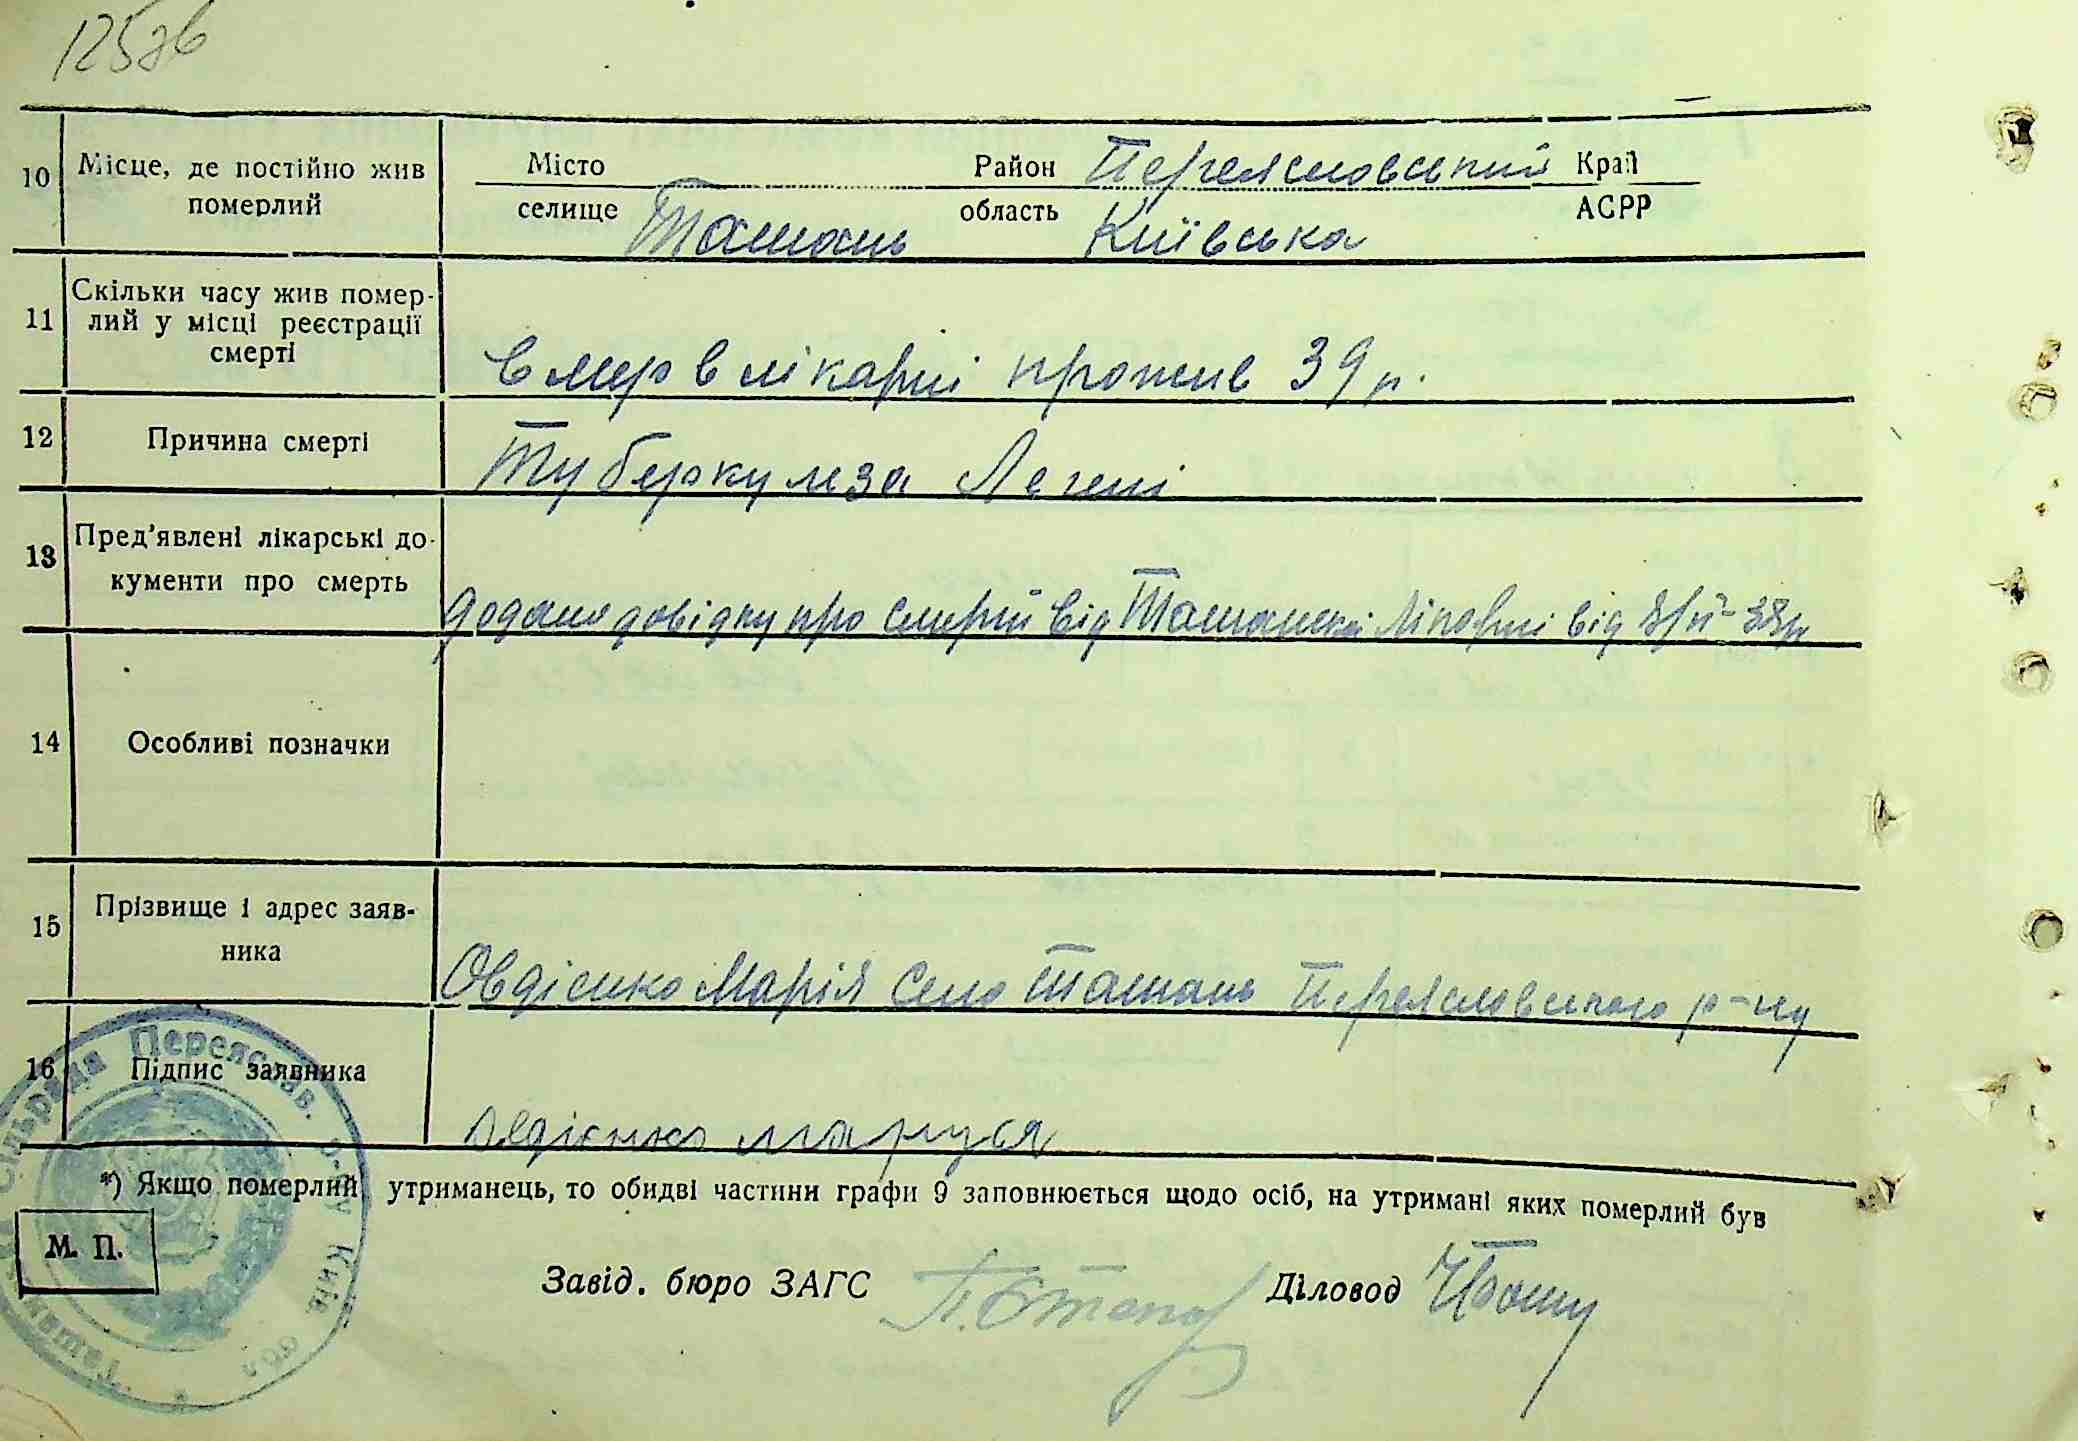 125зв
10 Місце, де постійно жив померлий
Місто Район Переясловський Край
селище Ташань область Київська АСРР
11 Скільки часу жив помер-
лий у місці реєстрації
смерті
вмер в лікарні прожив 39 р.
12 Причина смерті Туберкульоза Легені
13 Пред'явлені лікарські до-
кументи про смерть
додано довідку про смерть від Ташанскої від
14 Особливі позначки
15 Прізвище і адрес заяв-
ника
Овдієнко Марія Село Ташань Переясловського р-ну
16 Підпис заявника
Овдієнко маруся
*) Якщо померлий утриманець, то обидві частини графи 9 заповнюється щодо осіб, на утримані яких померлий був
М. П.
Завід. бюро ЗАГС Діловод
сільрада Переяслав. р-ну Київ. обл.